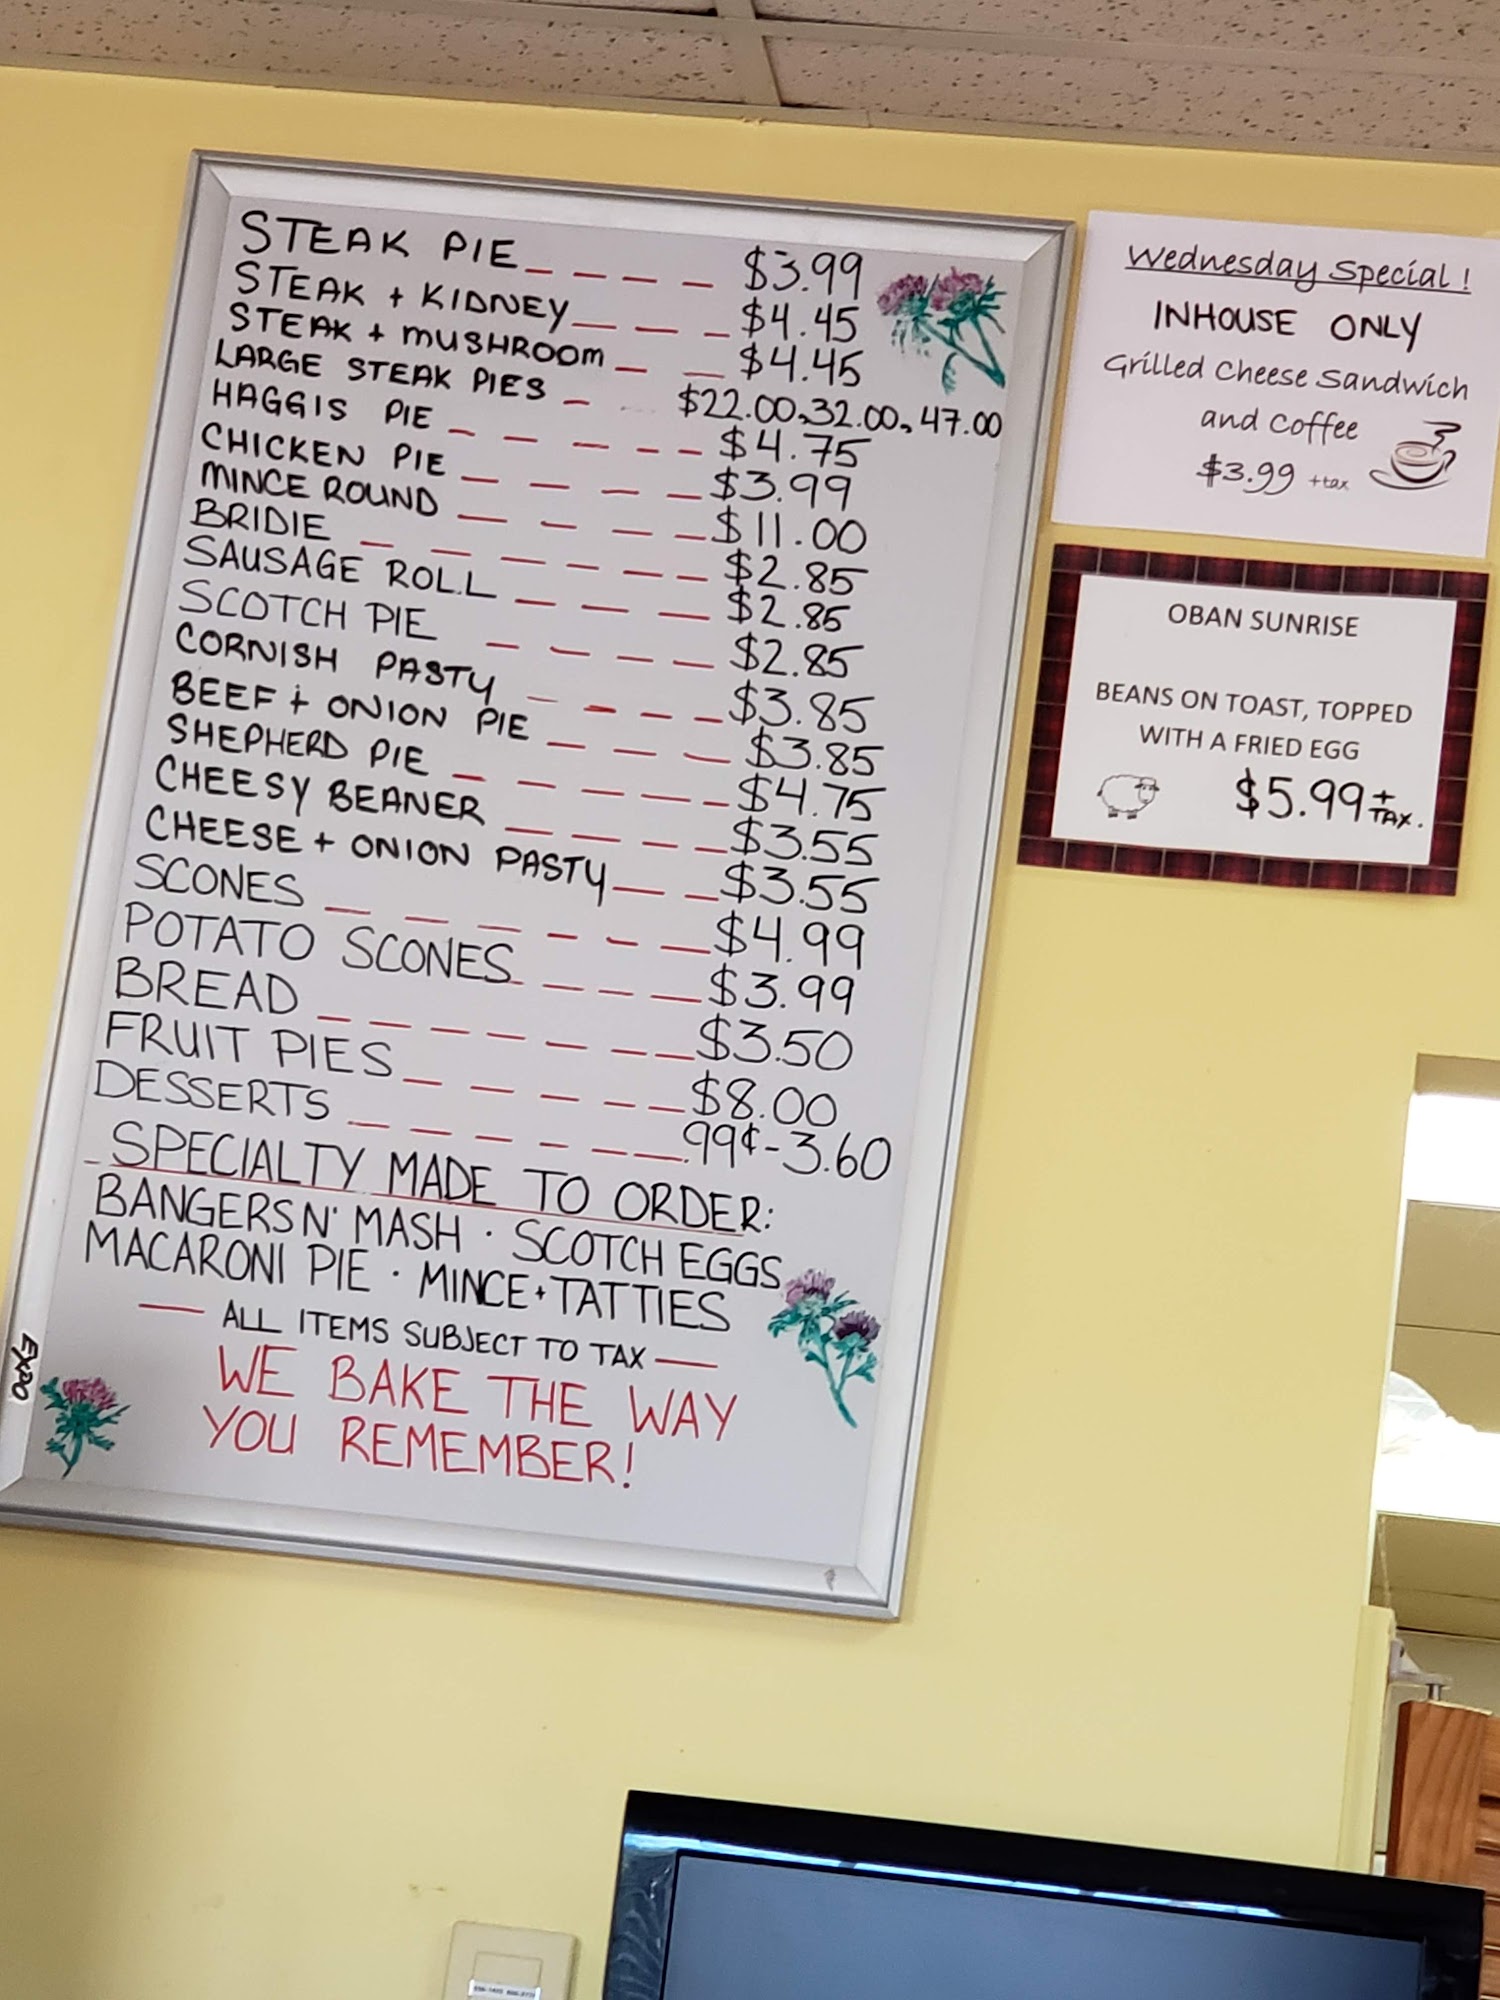 STEAK PIE _ _ _ _ _ $3.99
STEAK + KIDNEY _ _ _ $4.45
STEAK + MUSHROOM _ _ $4.45
LARGE STEAK PIES _ $22.00, 32.00, 47.00
HAGGIS PIE _ _ _ _ _ $4.75
CHICKEN PIE _ _ _ _ $3.99
MINCE ROUND _ _ _ _ $11.00
BRIDIE _ _ _ _ _ _ $2.85
SAUSAGE ROLL _ _ _ _ $2.85
SCOTCH PIE _ _ _ _ $2.85
CORNISH PASTY _ _ _ _ $3.85
BEEF + ONION PIE _ _ _ $3.85
SHEPHERD PIE _ _ _ _ _ $4.75
CHEESY BEANER _ _ _ _ $3.55
CHEESE + ONION PASTY _ _ $3.55
SCONES _ _ _ _ _ _ $4.99
POTATO SCONES _ _ _ _ $3.99
BREAD _ _ _ _ _ _ $3.50
FRUIT PIES _ _ _ _ _ $8.00
DESSERTS _ _ _ _ _ _ .99¢-3.60
SPECIALTY MADE TO ORDER:
BANGERS N' MASH · SCOTCH EGGS
MACARONI PIE · MINCE + TATTIES
— ALL ITEMS SUBJECT TO TAX —
WE BAKE THE WAY
YOU REMEMBER!
EXPO
Wednesday Special !
INHOUSE ONLY
Grilled Cheese Sandwich
and Coffee
$3.99 +tax
OBAN SUNRISE
BEANS ON TOAST, TOPPED
WITH A FRIED EGG
$5.99 + TAX.